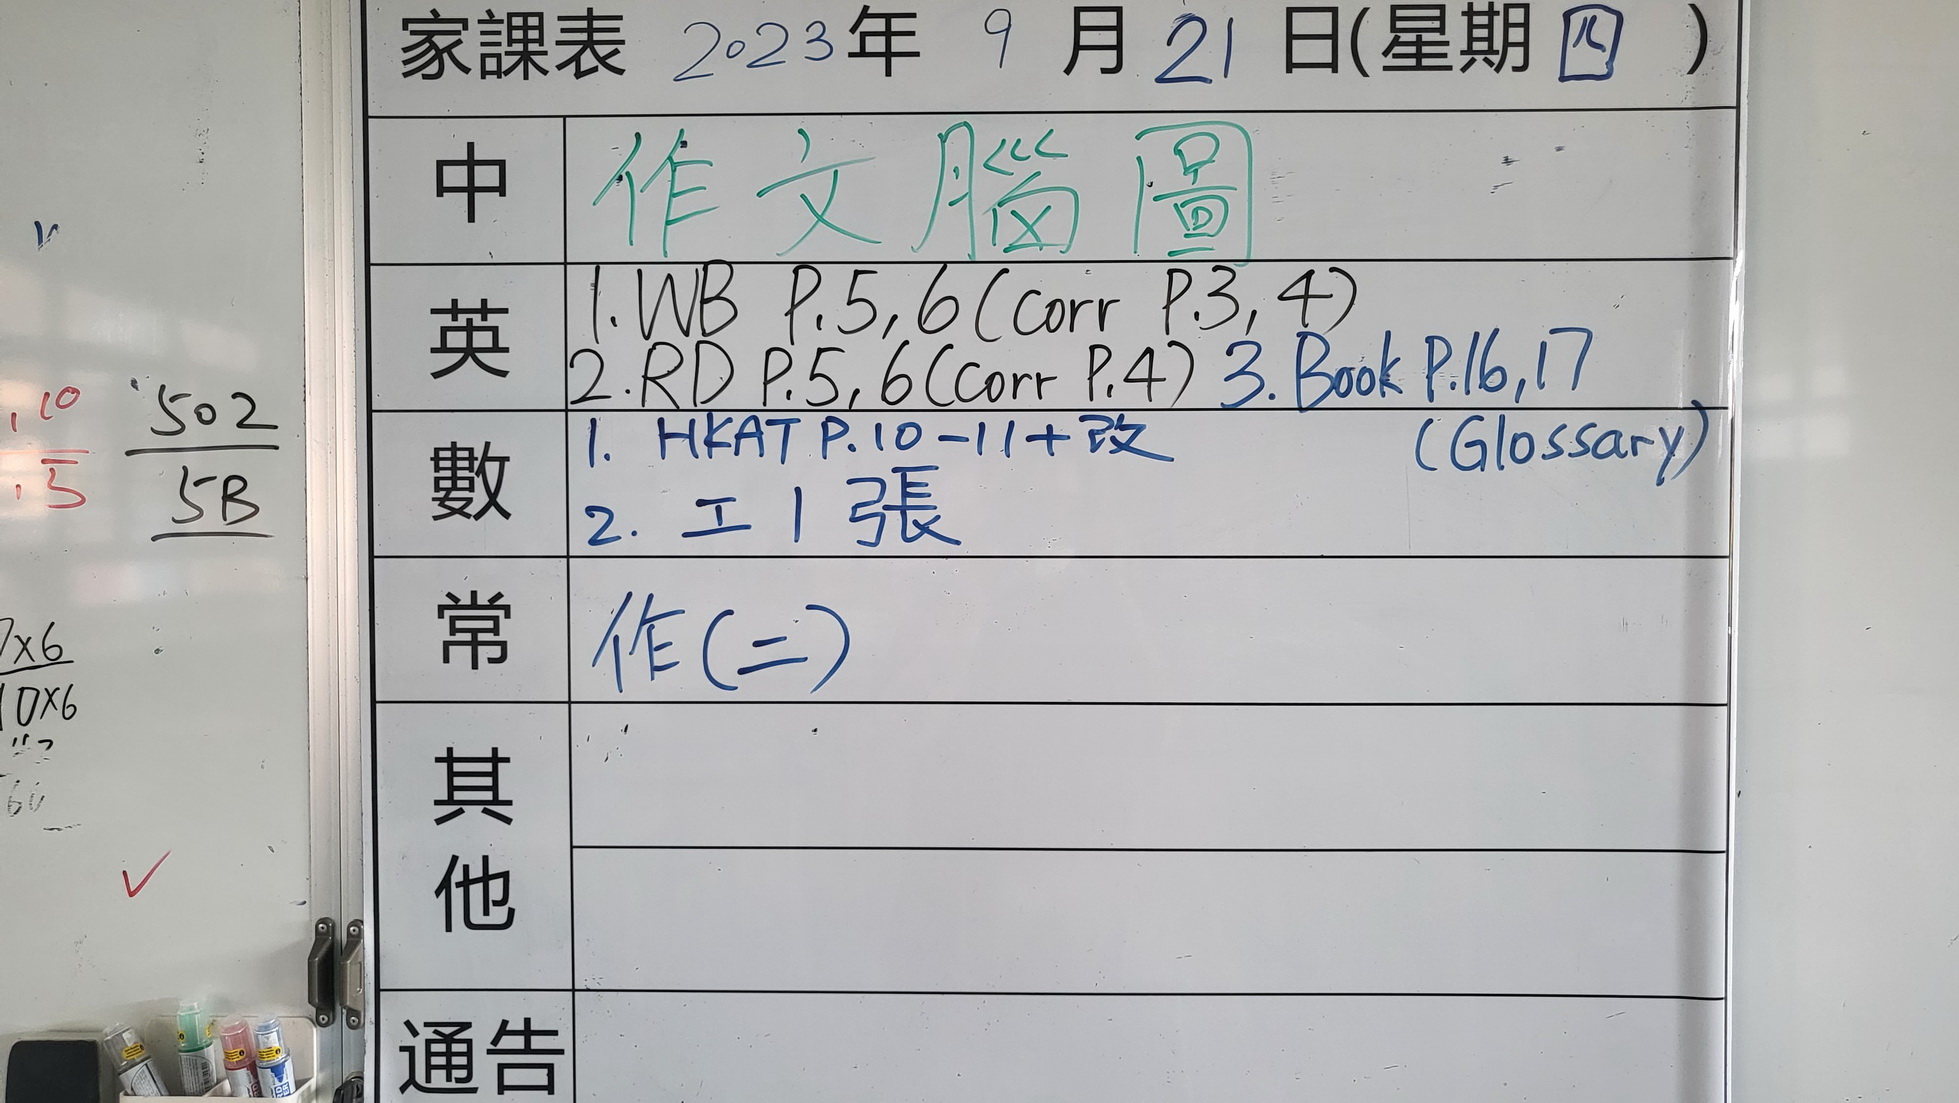 家課表 2023年 9月21日(星期四)
中 作文腦圖
英 1. WB P.5,6 (corr P.3,4)
2. RD P.5,6 (corr P.4) 3. Book P.16,17
(Glossary)
數 1. HKAT P.10-11+改
2. 工1張
常 作(二)
其他
通告
.10
.5
502
5B
7x6
10x6